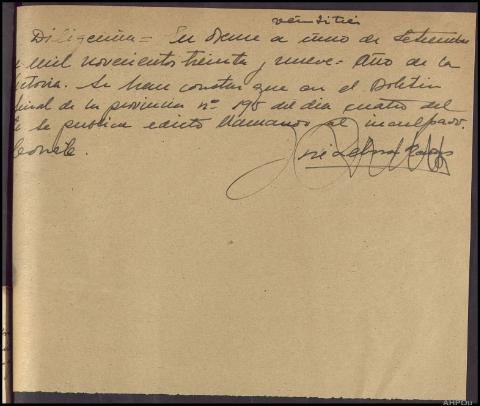 veintitrés
Diligencia = En Osuna a uno de Setiembre
mil novecientos treinta y nueve. Año de la
ctoria. Se han constar que en el Boletin
cial de la provincia nº 198 del dia cuatro del
se publica edicto llamando al inculpado.
Conste.
José
AHPOu